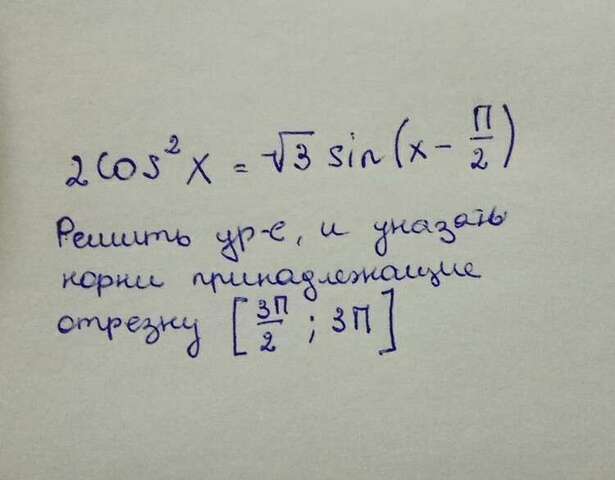 2cos²x = √3 sin(x - П/2)
Решить ур-е, и указать
корни принадлежащие
отрезку [3П/2 ; 3П]